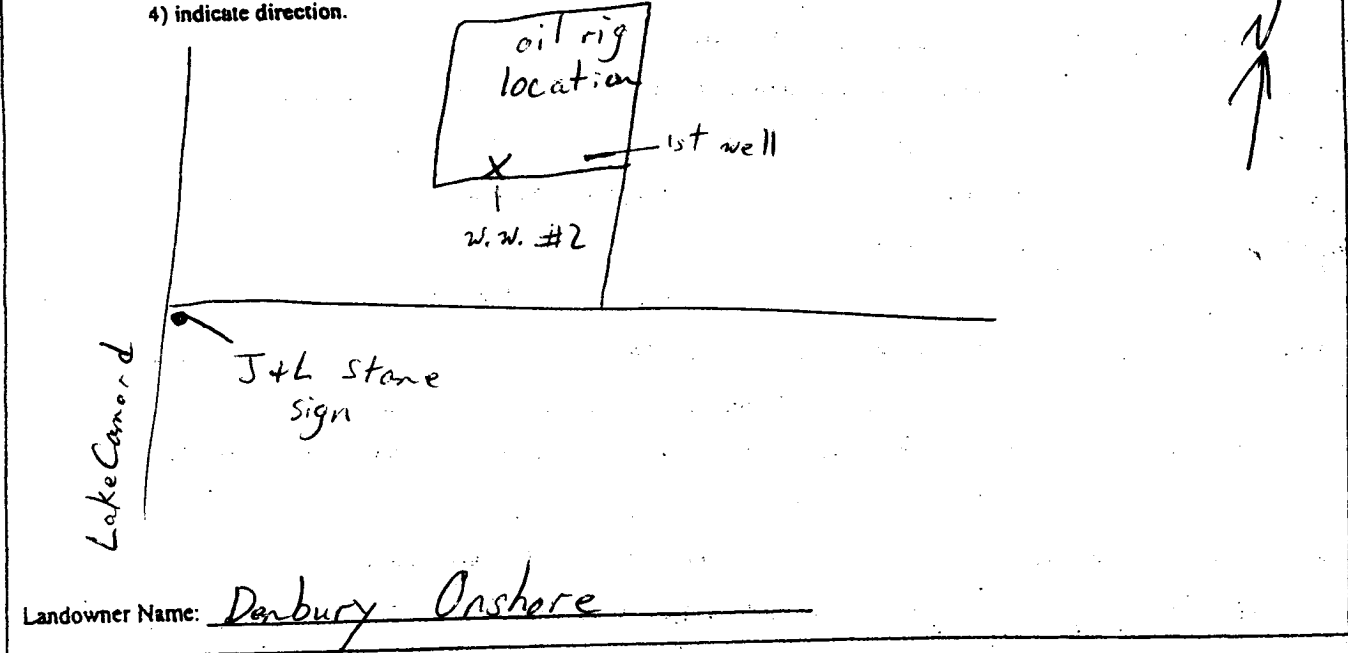 4) indicate direction.
N
oil rig
location
1st well
X
W.W. #2
J+L stone
sign
Lake Comord
Landowner Name: Denbury Onshore